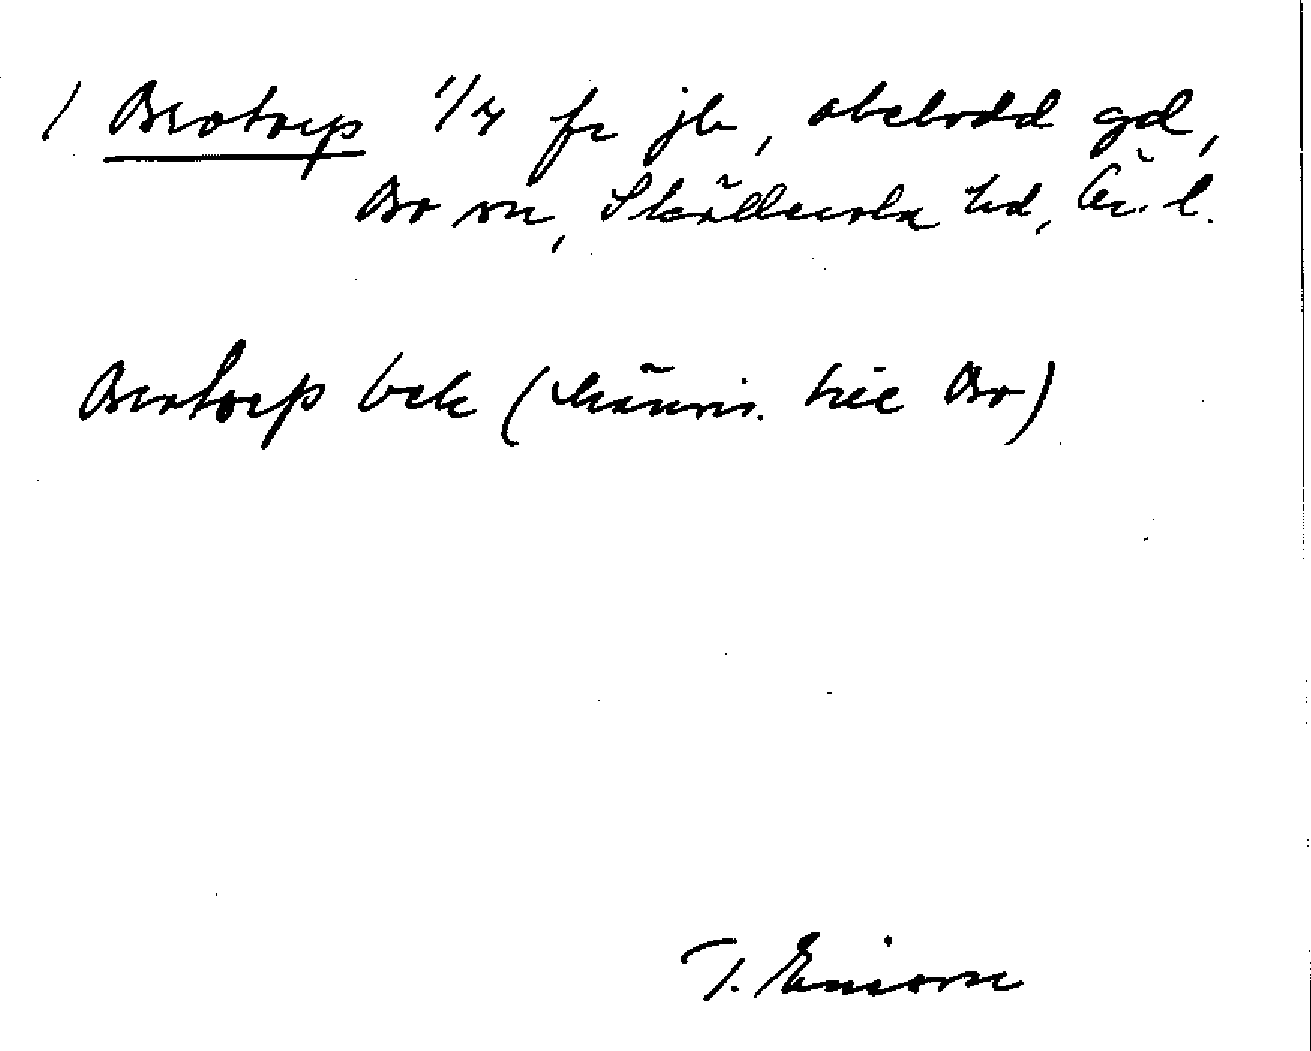 1 Brotorp 1/4 fr jb, obebodd gd,
Bo sn, Skyllersta hd, Ör. l.
Brotorp bek (hänvis. till Bo)
T. Ericson